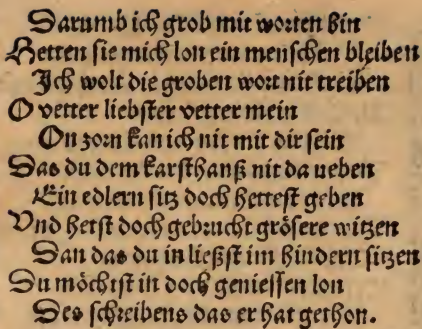 Darumb ich grob mit worten bin
Hetten sie mich lon ein menschen bleiben
Ich wolt die groben wort nit treiben
O vetter liebster vetter mein
On zorn kan ich nit mit dir sein
Das du dem karsthanß nit da neben
Ein edlern sitz doch hettest geben
Vnd hetst doch gebrucht grösere witzen
Dan das du in ließst im hindern sitzen
Du möchtst in doch geniessen lon
Des schreibens das er hat gethon.